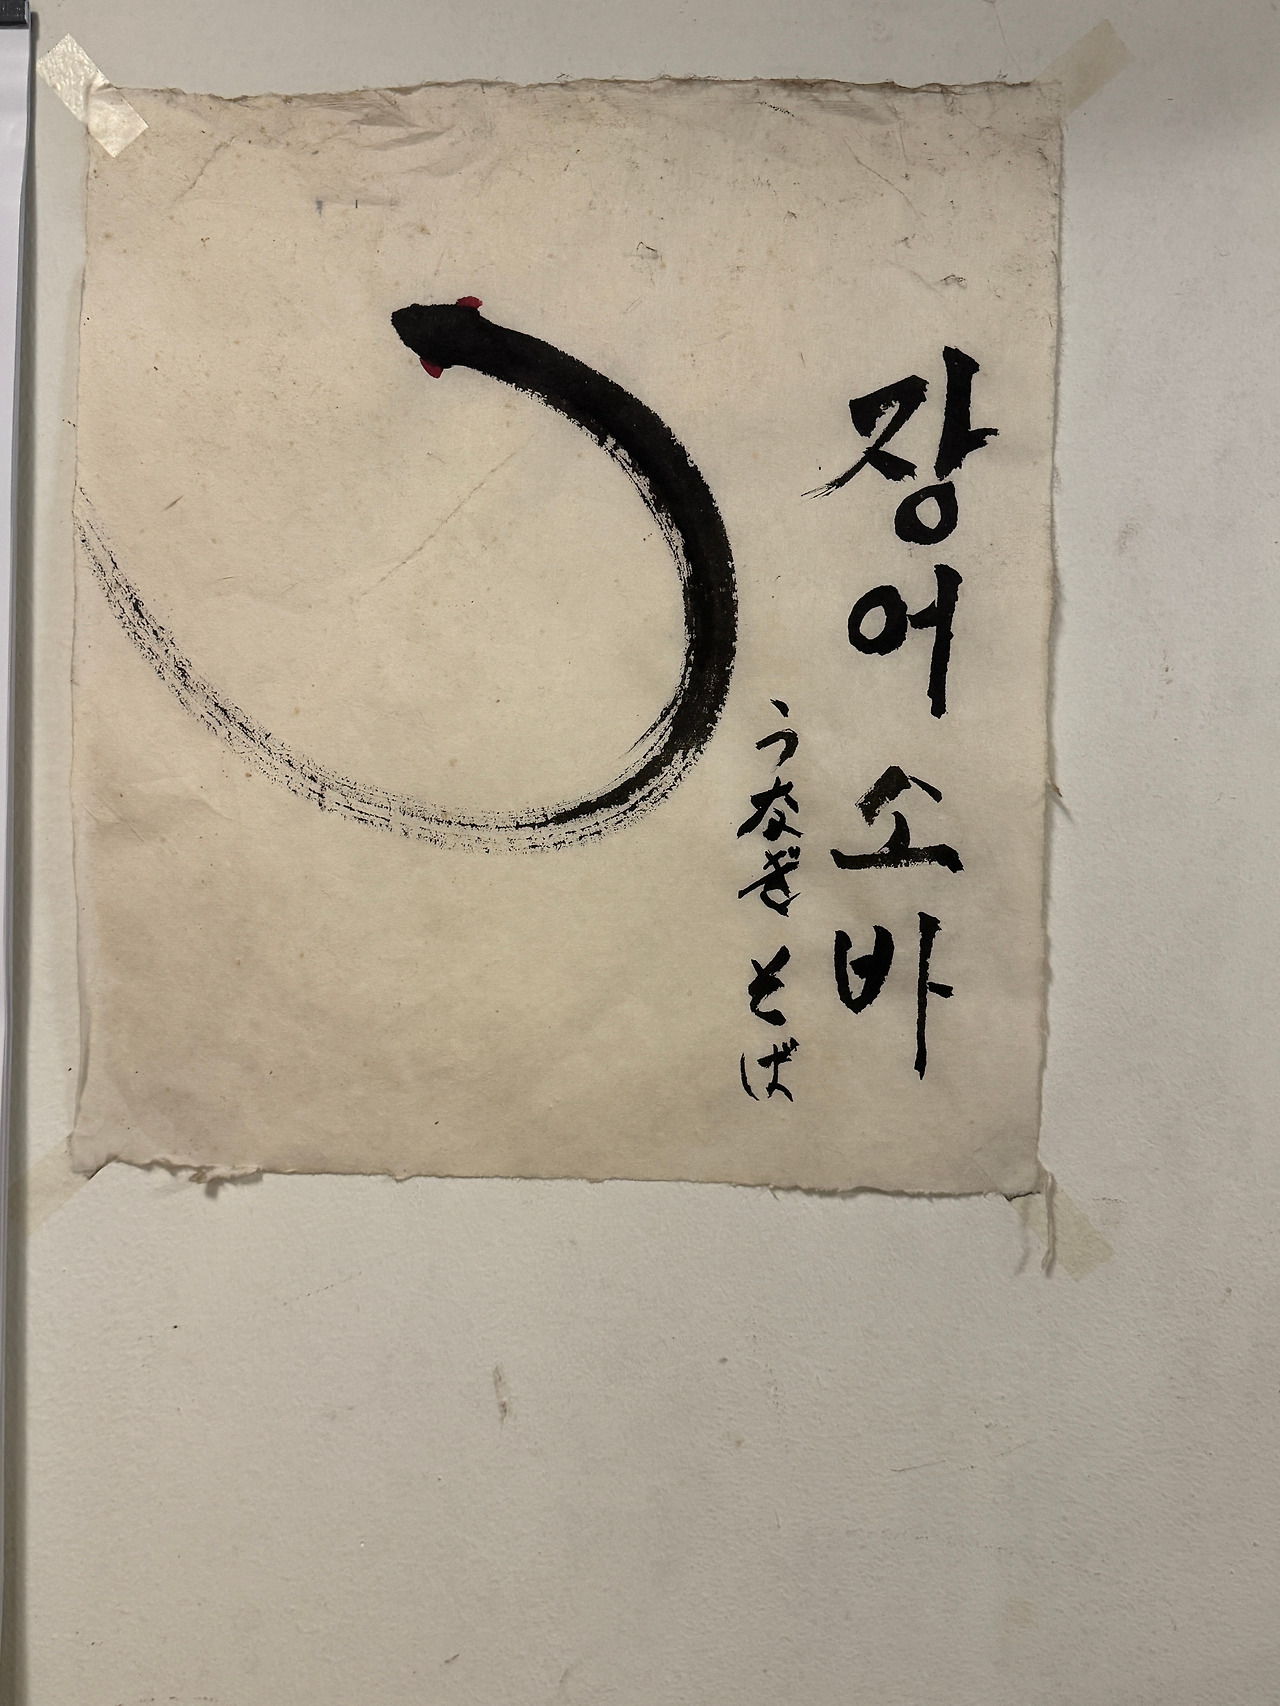 장어소바
うなぎそば